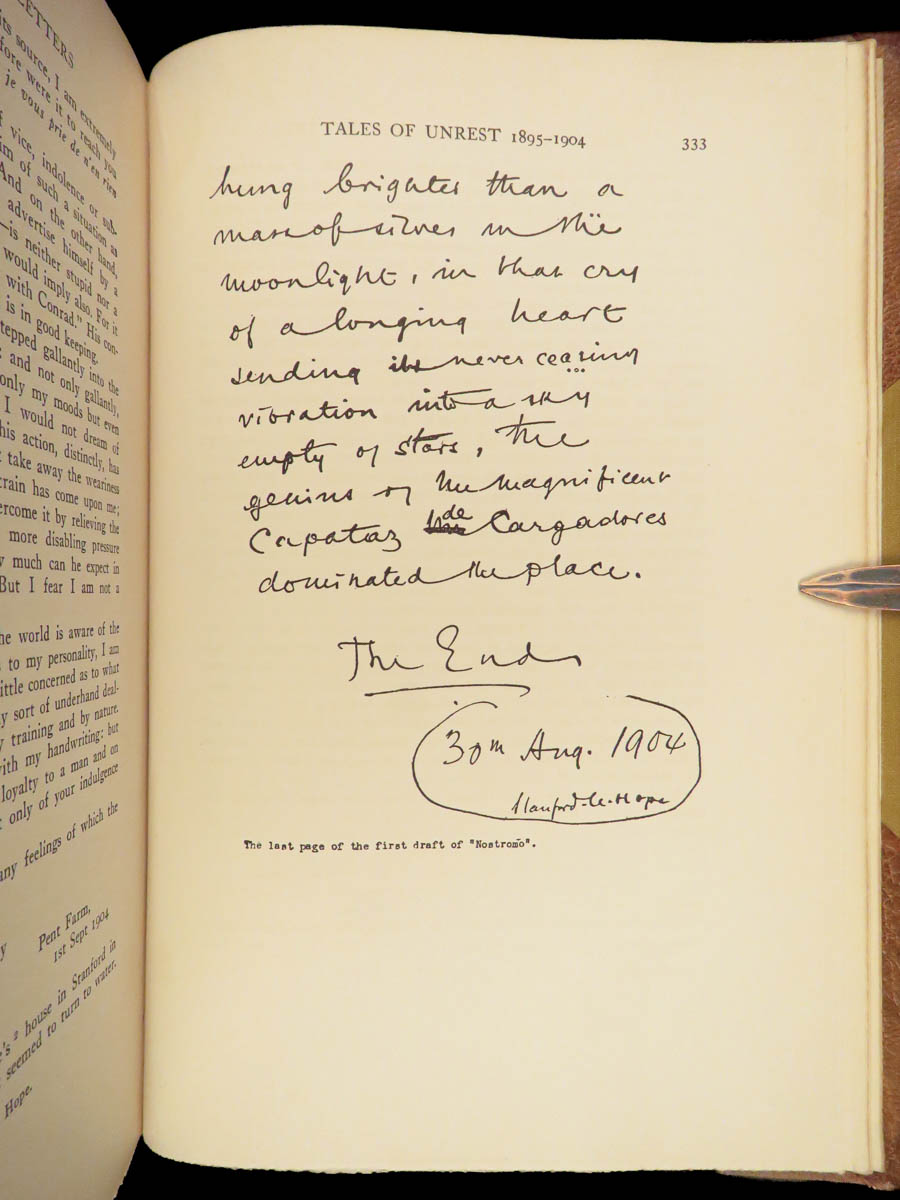 LETTERS
its source, I am extremely
fore were it to reach you
je vous prie de n'en rien
f vice, indolence or sub-
im of such a situation as
And on the other hand,
advertise himself by a
—is neither stupid nor a
would imply also. For it
with Conrad." His con-
is in good keeping.
tepped gallantly into the
; and not only gallantly,
only my moods but even
I would not dream of
his action, distinctly, has
t take away the weariness
train has come upon me;
ercome it by relieving the
more disabling pressure
w much can he expect in
But I fear I am not a
he world is aware of the
to my personality, I am
little concerned as to what
y sort of underhand deal-
y training and by nature.
with my handwriting: but
loyalty to a man and on
t only of your indulgence
any feelings of which the
y
Pent Farm,
1st Sept 1904
's 2 house in Stanford in
seemed to turn to water.
Hope.
TALES OF UNREST 1895–1904 333
hung brighter than a
mass of silver in the
moonlight, in that cry
of a longing heart
sending its never ceasing
vibration into a sky
empty of stars, the
genius of the magnificent
Capataz de Cargadores
dominated the place.
The End
30th Aug. 1904
Stanford-le-Hope
The last page of the first draft of "Nostromo".